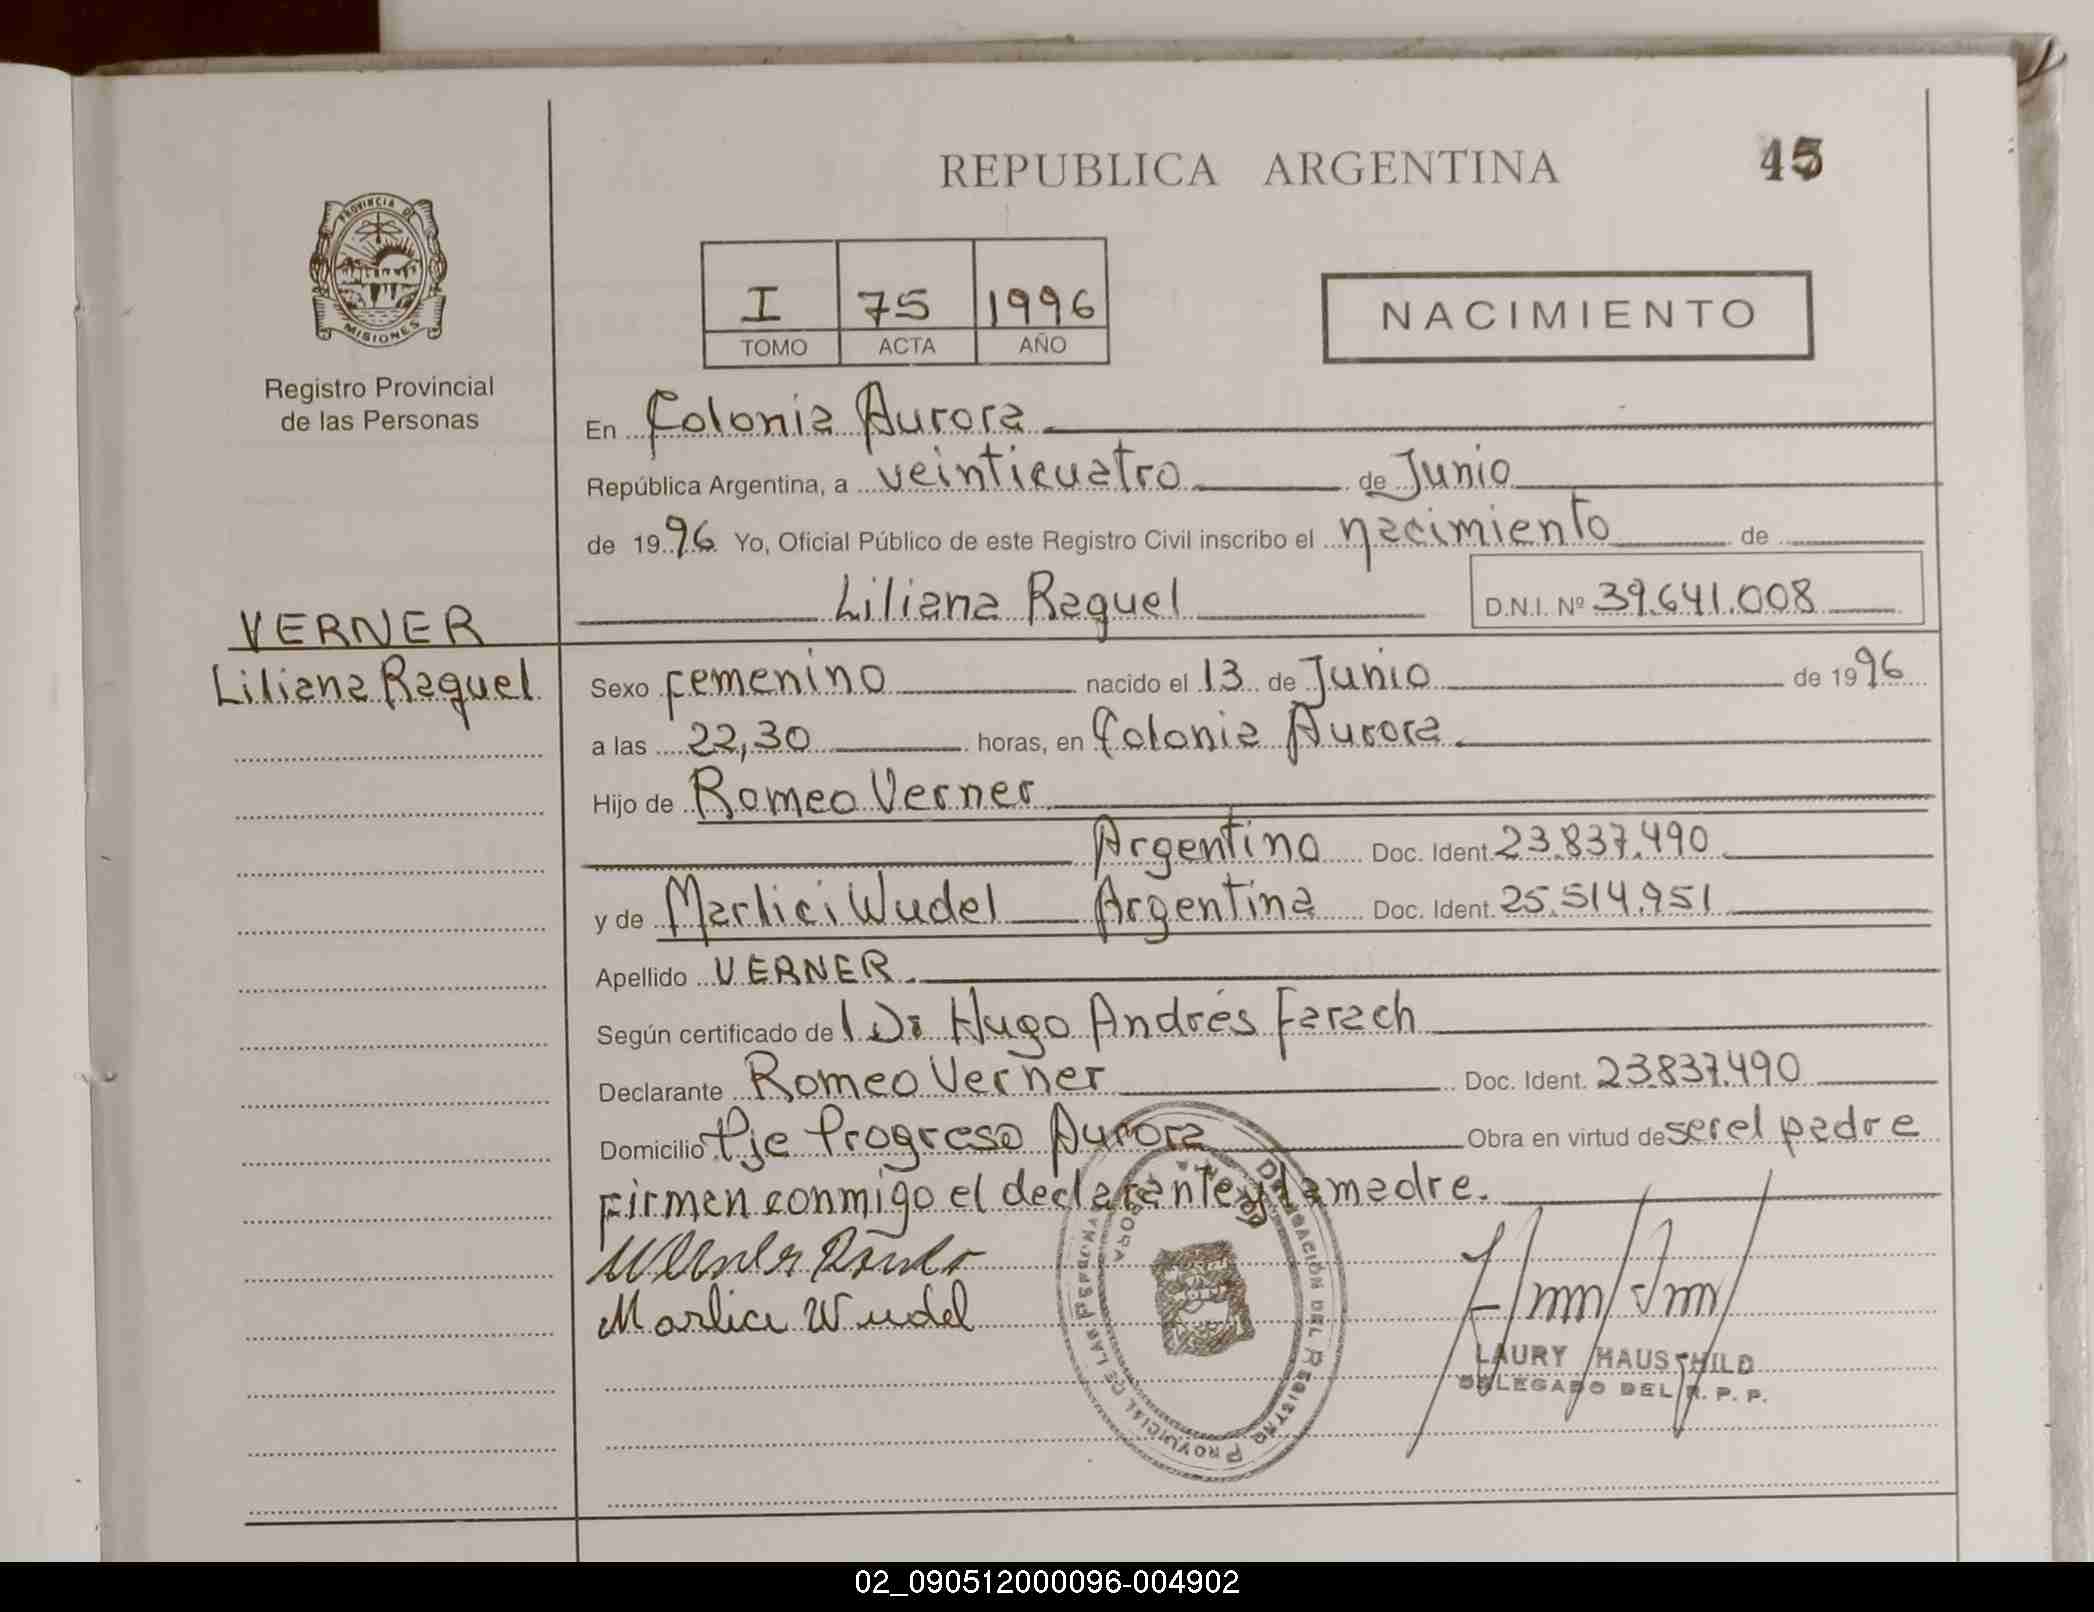 REPUBLICA ARGENTINA
45
PROVINCIA DE
MISIONES
Registro Provincial
de las Personas
I 75 1996
TOMO ACTA AÑO
NACIMIENTO
En Colonia Aurora
República Argentina, a veinticuatro de Junio
de 1996 Yo, Oficial Público de este Registro Civil inscribo el nacimiento de
Liliana Raquel D.N.I. Nº 39.641.008
VERNER
Liliana Raquel
Sexo femenino nacido el 13 de Junio de 1996
a las 22,30 horas, en Colonia Aurora
Hijo de Romeo Verner
Argentino Doc. Ident. 23.837.490
y de Marlici Wudel Argentina Doc. Ident. 25.514.951
Apellido VERNER
Según certificado de Hugo Andrés Farach
Declarante Romeo Verner Doc. Ident. 23.837.490
Domicilio Pje Progreso Aurora Obra en virtud de ser el padre
Firman conmigo el declarante y la madre.
Marlici Wudel
DELEGACIÓN DEL REGISTRO PROVINCIAL DE LAS PERSONAS
LAURY HAUSCHILD
DELEGADO DEL R. P. P.
02_090512000096-004902